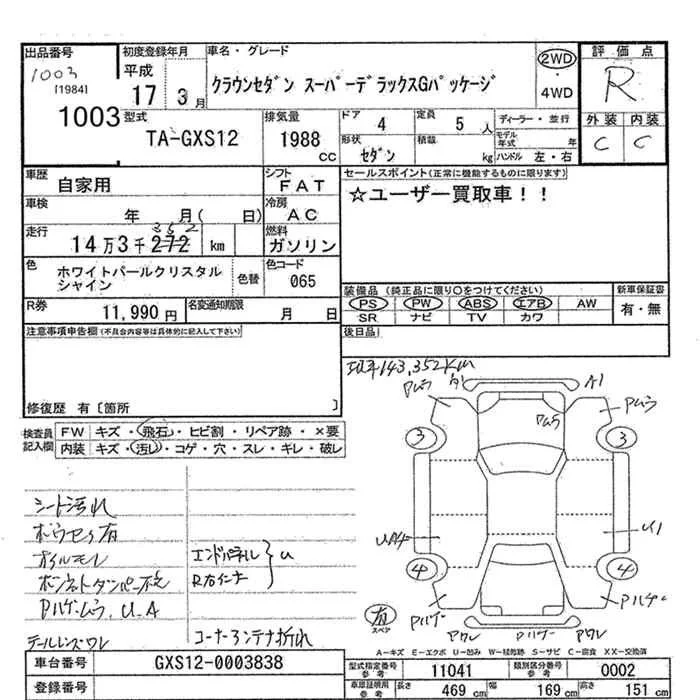 出品番号 初度登録年月 車名・グレード 評価点
1003 平成 2WD
[1984] 17 3月 クラウンセダン スーパーデラックスGパッケージ 4WD R
1003 型式 排気量 ドア 4 定員 5人 ディーラー・並行 外装 内装
TA-GXS12 1988cc 形状 セダン 積載 kg モデル年式 年 C C
ハンドル 左・右
車歴 シフト セールスポイント(正常に機能するものに限ります)
自家用 FAT ☆ユーザー買取車!!
車検 冷房
年 月( 日) AC
走行 352 燃料
14万3千272 km ガソリン
色 ホワイトパールクリスタルシャイン 色替 色コード
065
装備品 (純正品に限り○をつけてください) 新車保証書
R券 11,990円 名変通知期限 月 日 PS PW ABS エアB AW 有・無
SR ナビ TV カワ
注意事項申告欄(不具合内容等は具体的に記入して下さい) 後日品
現車143,352km
修復歴 有〔箇所 〕
検査員記入欄 FW キズ・飛石・ヒビ割・リペア跡・×要
内装 キズ・汚れ・コゲ・穴・スレ・キレ・破レ
Pムラ A1 A1 Pムラ
Pムラ
3 3
シート汚れ
UA4 U1
オイルモレ エンドパネル U
4 4
Pハゲムラ、U.A
有 スペア Pハゲ Pハゲ
Pハゲ
テールレンズワレ コーナーアンテナ折れ Aワレ Aワレ
A-キズ E-エクボ U-凹み W-補修跡 S-サビ C-腐食 XX-交換済
車台番号 GXS12-0003838 型式指定番号参考 11041 類別区分番号参考 0002
登録番号 車庫証明用参考 長さ 469cm 幅 169cm 高さ 151cm